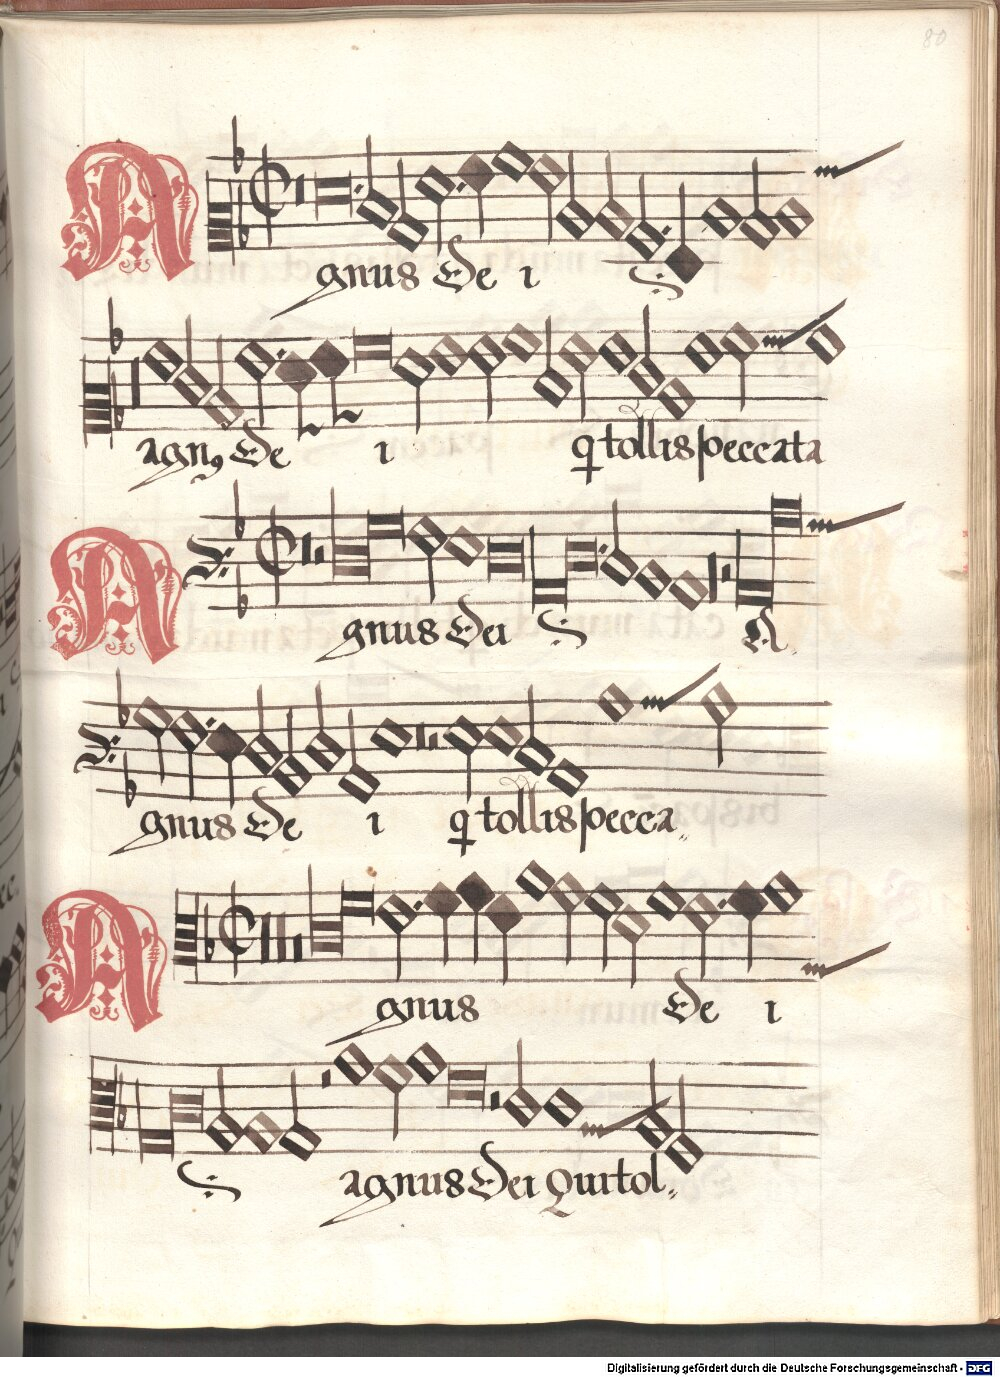 80
Agnus Dei
agnꝰ De i q tollis peccata
Agnus Dei A
gnus De i q tollis pecca
Agnus De i
agnus Dei Qui tol
Digitalisierung gefördert durch die Deutsche Forschungsgemeinschaft - DFG